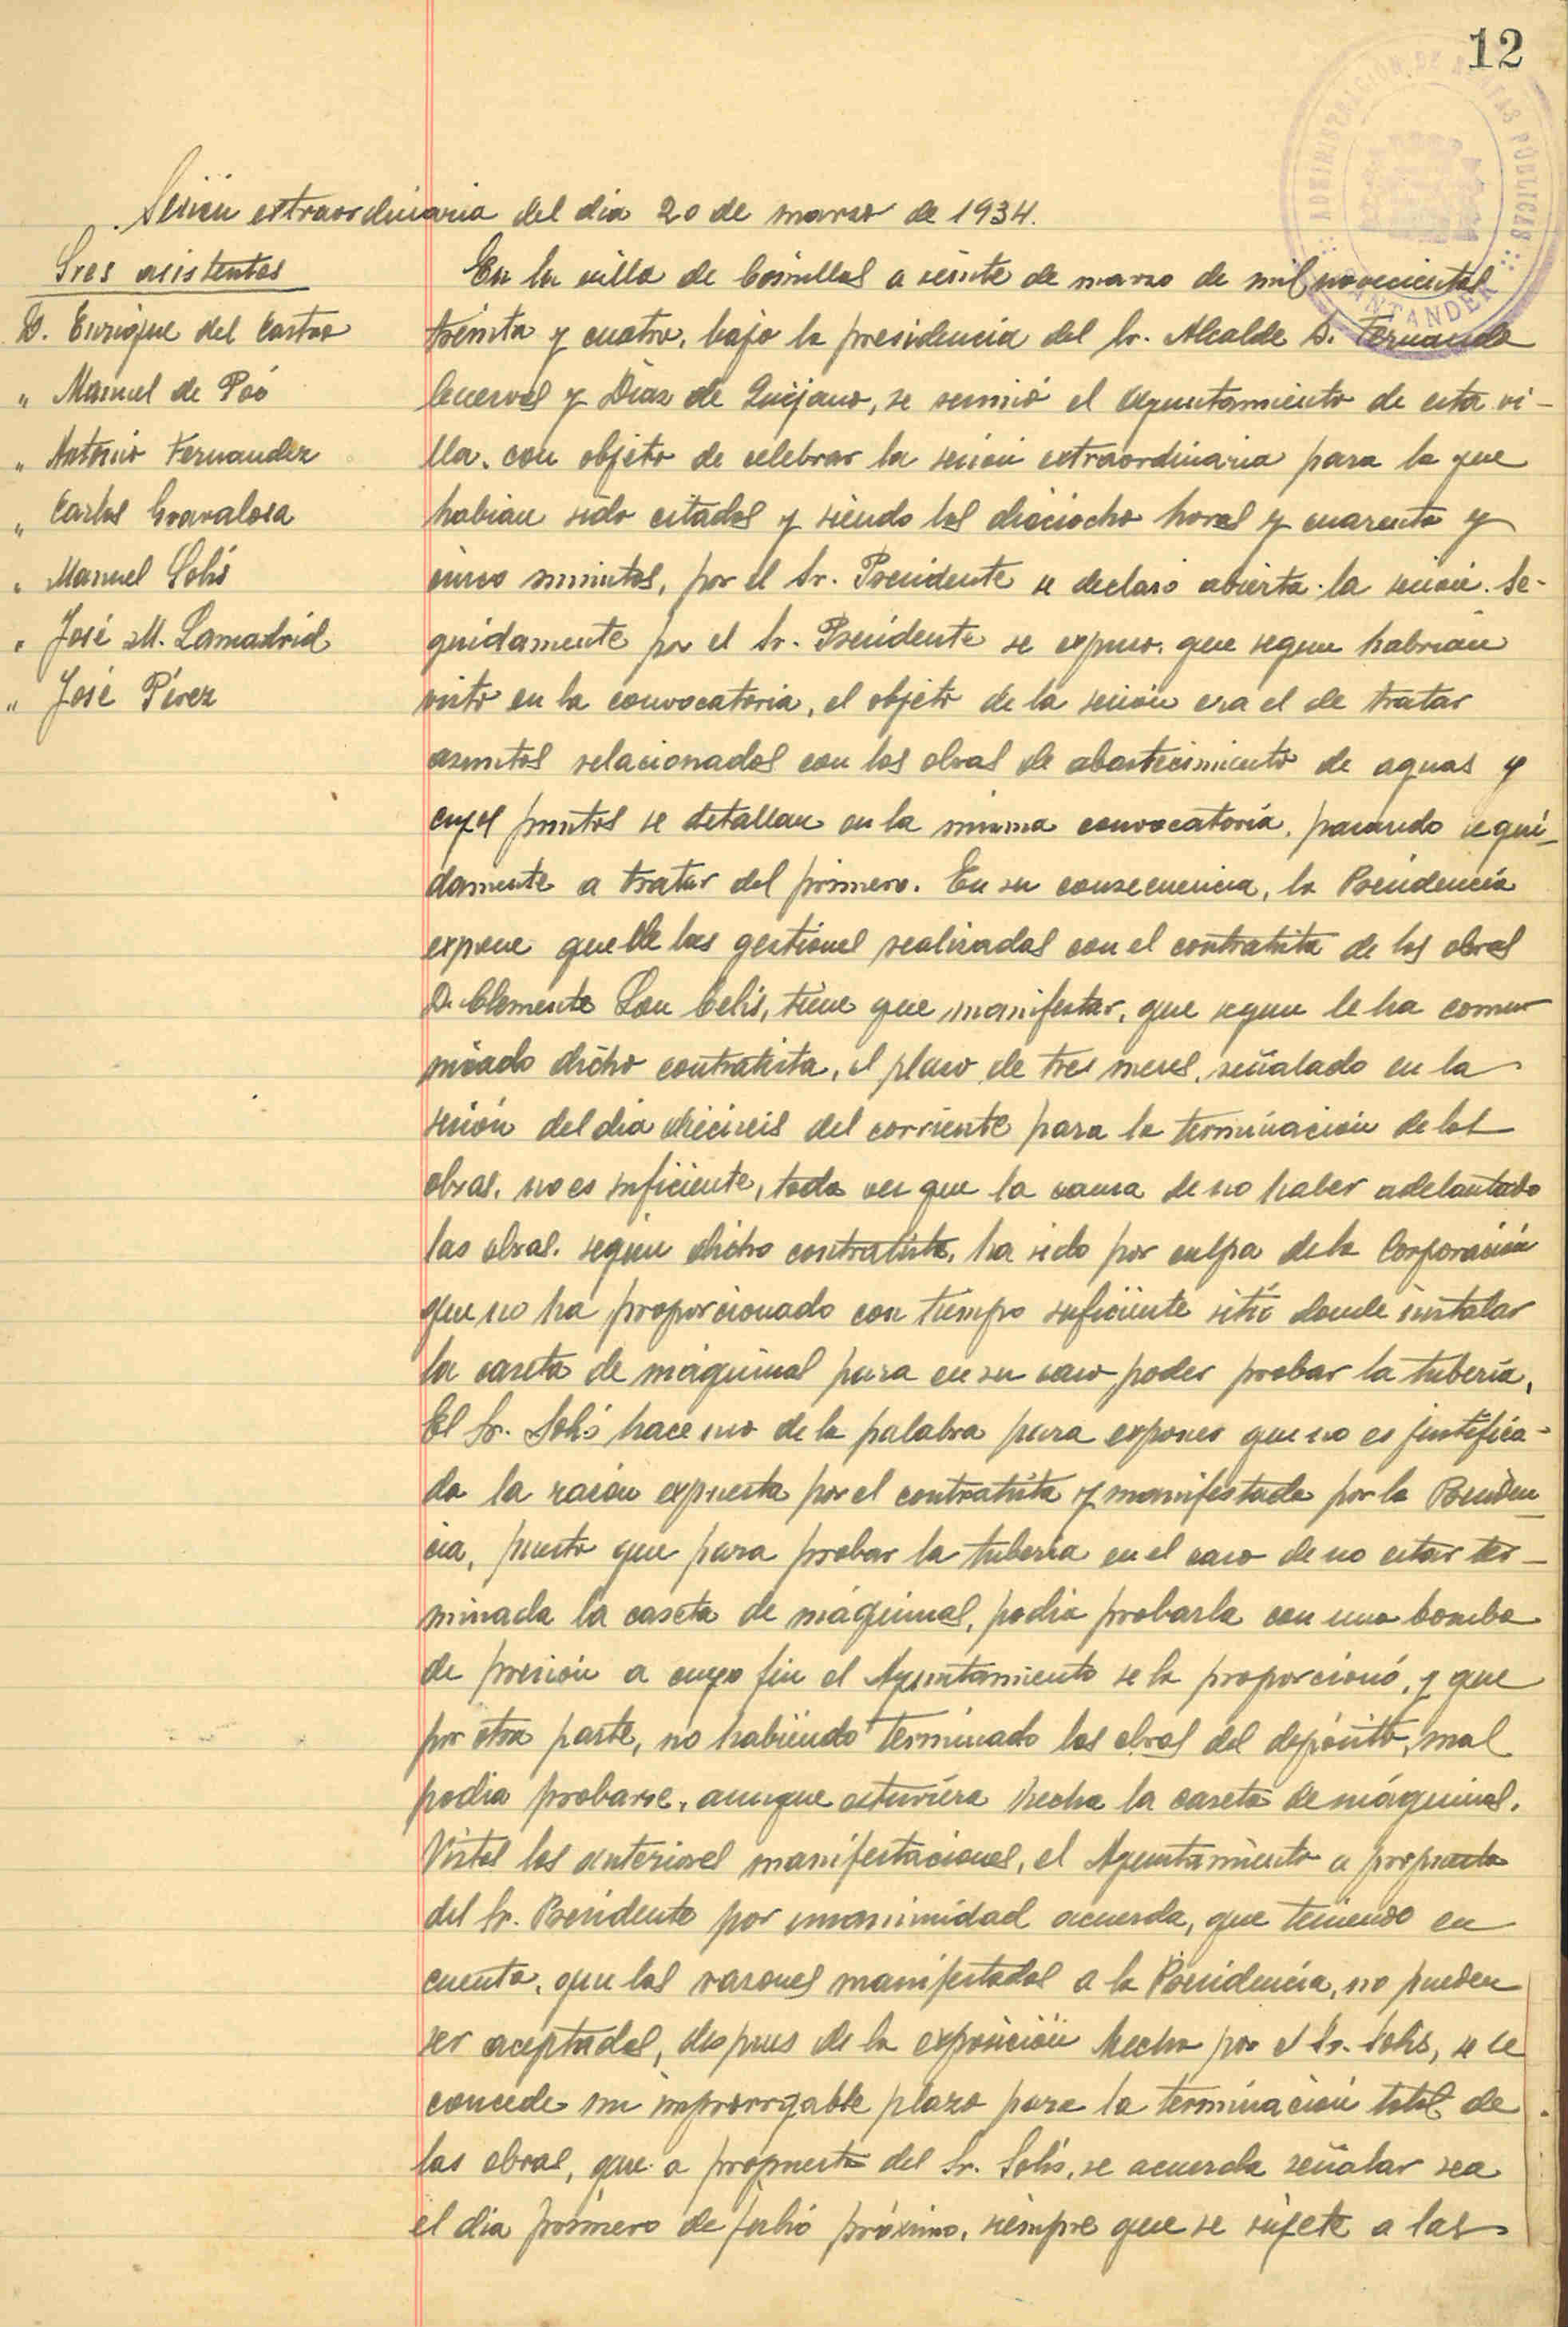 12
ADMINISTRACIÓN DE RENTAS PÚBLICAS
SANTANDER
Sesión extraordinaria del dia 20 de marzo de 1934.
Sres asistentes
D. Enrique del Castro
" Manuel de Poó
" Antonio Fernandez
" Carlos Gravalosa
" Manuel Solís
" José M. Lamadrid
" José Pérez
En la villa de Comillas a veinte de marzo de mil novecientos
treinta y cuatro, bajo la presidencia del Sr. Alcalde D. Fernando
Cuevas y Diaz de Quijano, se reunió el Ayuntamiento de esta vi-
lla, con objeto de celebrar la sesion extraordinaria para la que
habian sido citados y siendo las dieciocho horas y cuarenta y
cinco minutos, por el Sr. Presidente se declaró abierta la sesion. Se-
guidamente por el Sr. Presidente se expuso, que segun habrian
visto en la convocatoria, el objeto de la sesion era el de tratar
asuntos relacionados con las obras de abastecimiento de aguas y
cuyos puntos se detallan en la misma convocatoria, pasando segui-
damente a tratar del primero. En su consecuencia, la Presidencia
expone que de las gestiones realizadas con el contratista de las obras
D. Clemente Lou Celis, tiene que manifestar, que segun le ha comu
nicado dicho contratista, el plazo de tres meses, señalado en la
sesión del dia dieciseis del corriente para la terminacion de las
obras, no es suficiente, toda vez que la causa de no haber adelantado
las obras, según dicho contratista, ha sido por culpa de la Corporación
que no ha proporcionado con tiempo suficiente sitio donde instalar
la caseta de máquinas para en su caso poder probar la tuberia.
El Sr. Solís hace uso de la palabra para exponer que no es justifica-
da la razón expuesta por el contratista y manifestada por la Presiden-
cia, puesto que para probar la tuberia en el caso de no estar ter-
minada la caseta de máquinas, podia probarla con una bomba
de presión a cuyo fin el Ayuntamiento se la proporcionó, y que
por otra parte, no habiendo terminado las obras del depósito, mal
podia probarse, aunque estuviera hecha la caseta de máquinas.
Vistas las anteriores manifestaciones, el Ayuntamiento a propuesta
del Sr. Presidente por unanimidad acuerda, que teniendo en
cuenta, que las razones manifestadas a la Presidencia, no pueden
ser aceptadas, despues de la exposición hecha por el Sr. Solís, se le
concede un improrrogable plazo para la terminación total de
las obras, que a propuesta del Sr. Solís, se acuerda señalar sea
el dia primero de julio próximo, siempre que se sujete a las